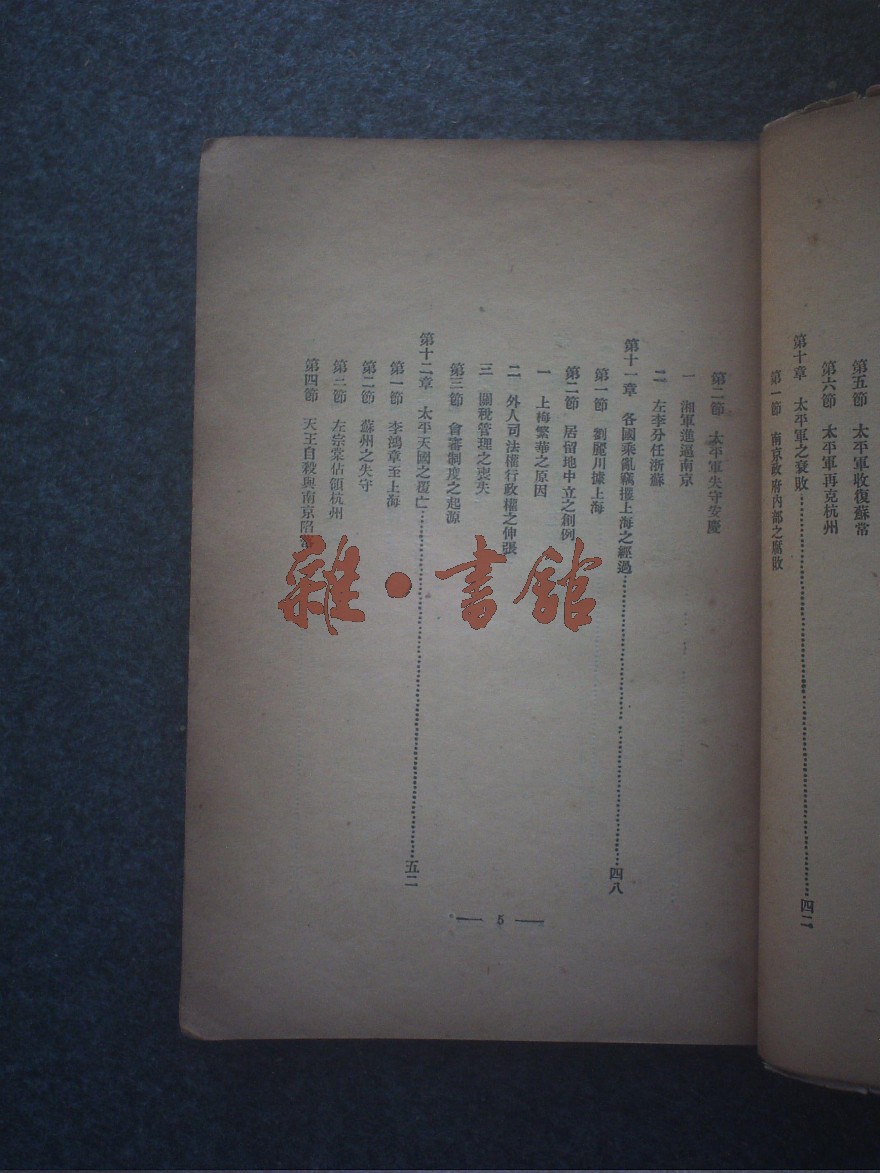 第五節　太平軍收復蘇常
第六節　太平軍再克杭州
第十章　太平軍之衰敗……四二
第一節　南京政府內部之腐敗
第二節　太平軍失守安慶
一　湘軍進逼南京
二　左李分任浙蘇
第十一章　各國乘亂竊攫上海之經過……四八
第一節　劉麗川據上海
第二節　居留地中立之創例
一　上梅繁華之原因
二　外人司法權行政權之伸張
三　關稅管理之喪失
第三節　會審制度之起源
第十二章　太平天國之覆亡……五二
第一節　李鴻章至上海
第二節　蘇州之失守
第三節　左宗棠佔領杭州
第四節　天王自殺與南京陷落
— 5 —
雜·書館